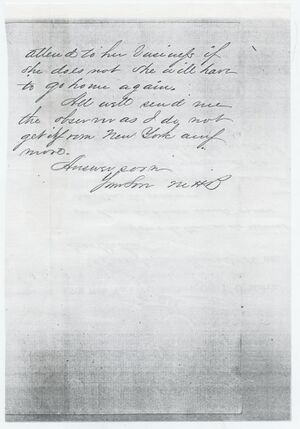 attend to her Business if
she does not she will have
to go home again.
All will send me
the observer as I do not
get it from New York any
more.
Answer soon
Your Son M H B